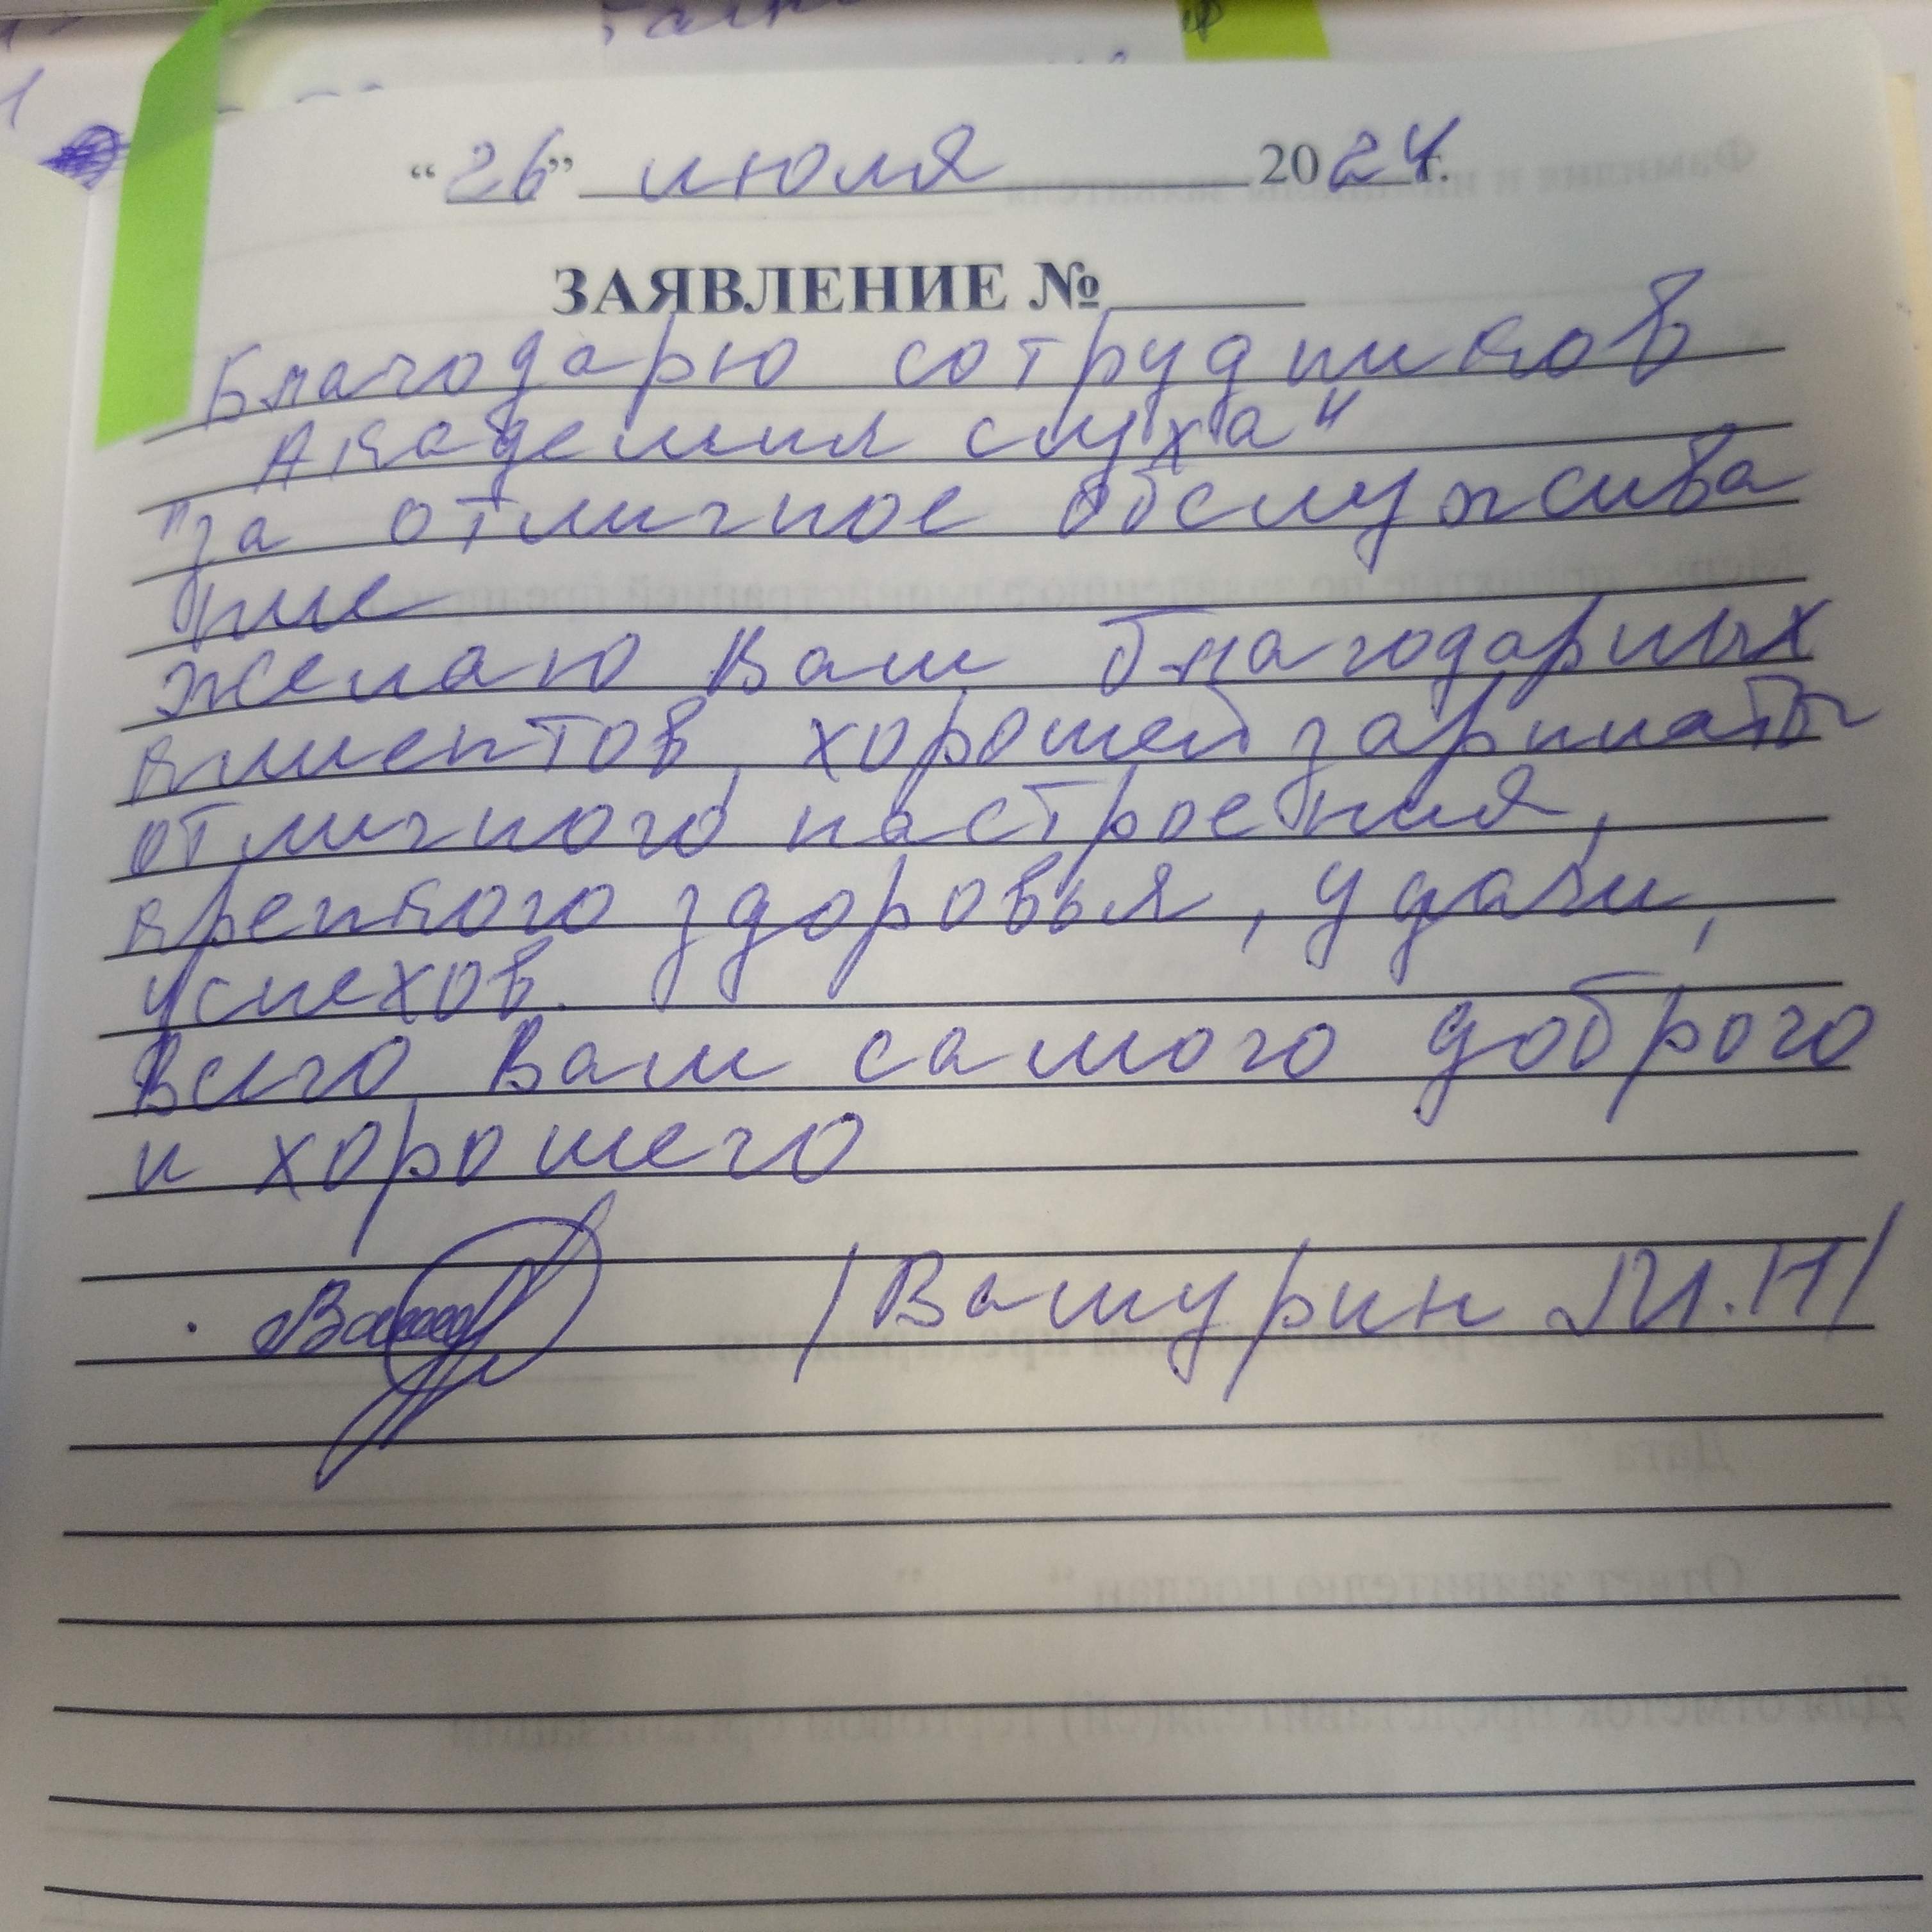 “26” июля 2024 г.
ЗАЯВЛЕНИЕ №
Благодарю сотрудников
"Академия слуха"
за отличное обслужива
ние
желаю Вам благодарных
клиентов, хорошей зарплаты
отличного настроения,
крепкого здоровья, удачи,
успехов.
Всего Вам самого доброго
и хорошего
/Вашурин И.Н/